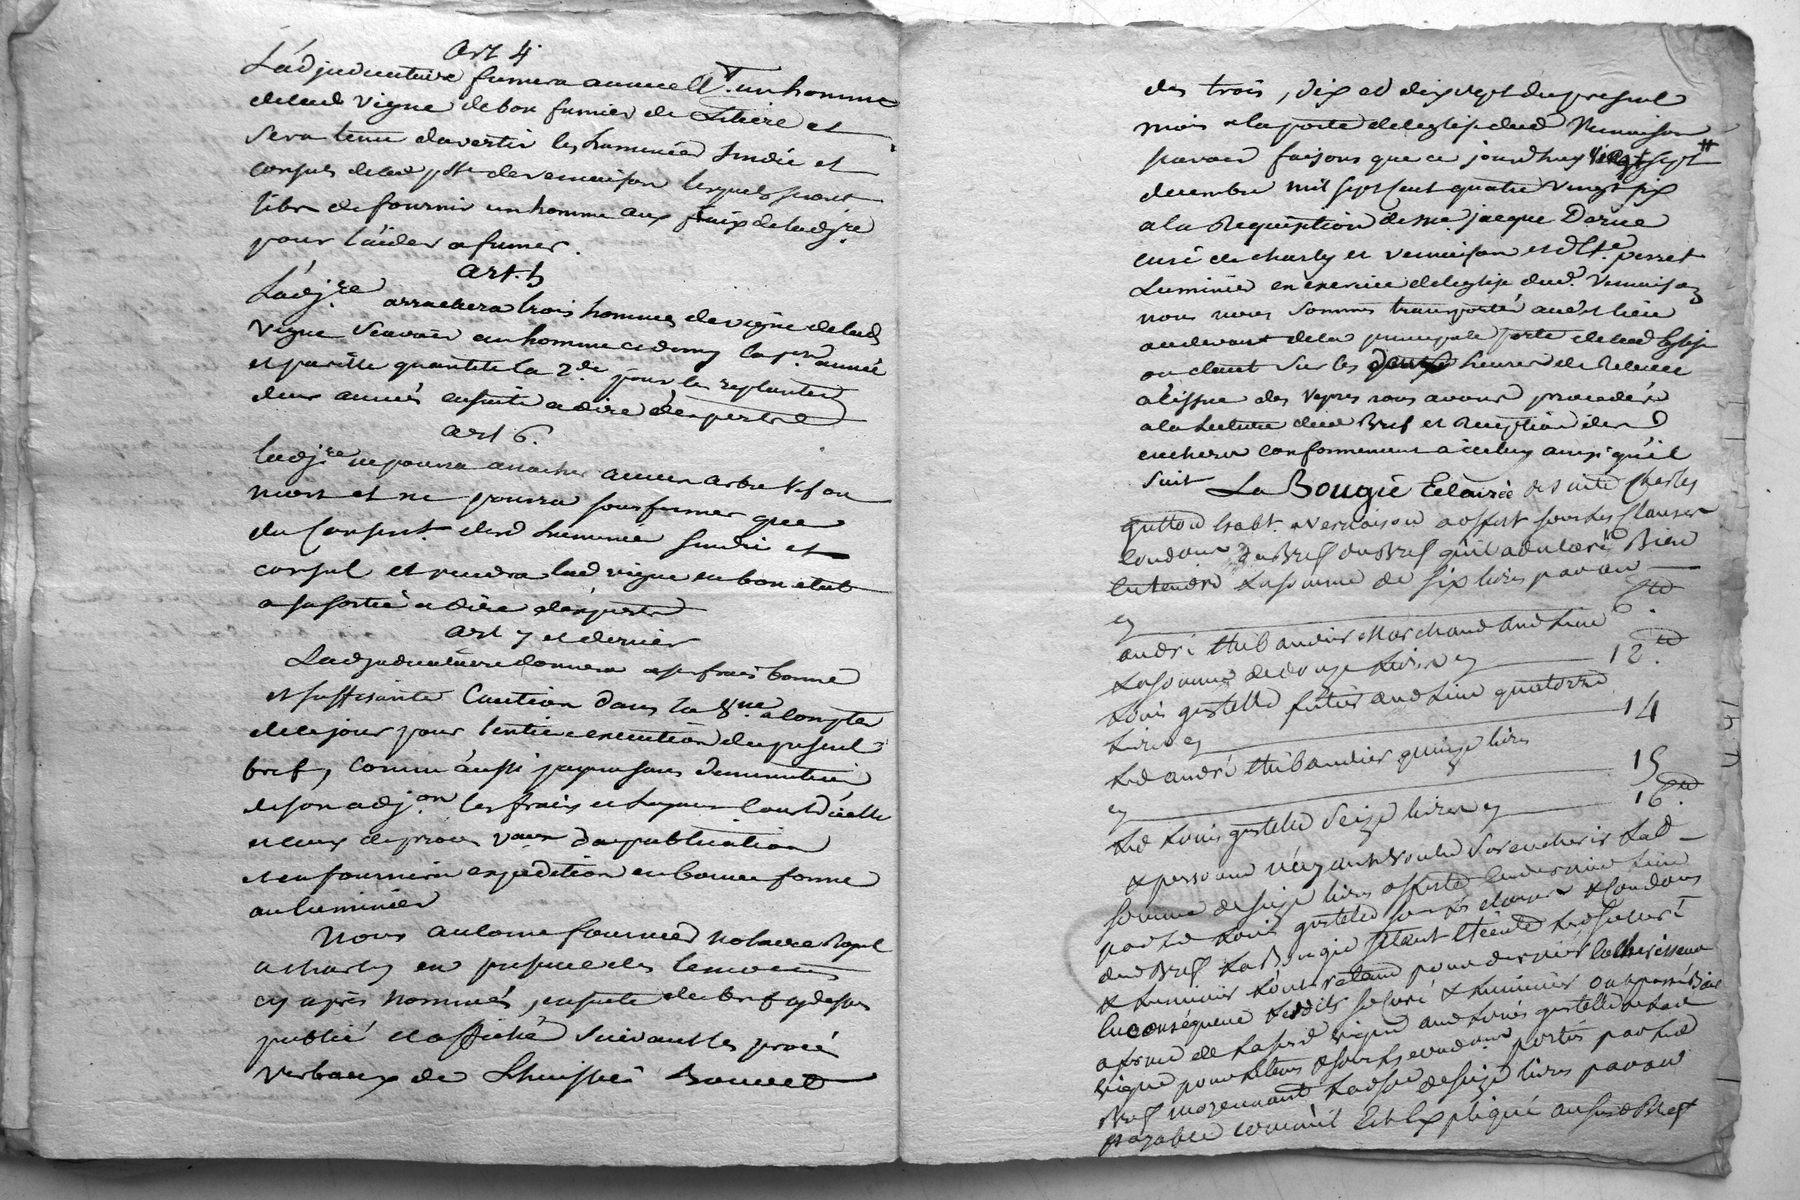 Art 4
L'adjudicataire fumera annuellt. un homme
de lad vigne de bon fumier de Litiere et
sera tenu d'avertir les Luminier sindic et
consul de lad psse de vernaison lesquels seront
libre de fournir un homme aux fraix de ladjre
pour l'aider a fumer.
Art. 5
L'adjre. arrachera trois hommes de vigne de lad
vigne Scavoir un homme et demy la pre. année
et pareille quantité la 2de. pour les replanter
deux années ensuite a dire d'expert
art 6.
ladjre ne pourra arracher aucun arbre vif ou
mort et ne pourra sous fermer que
du Consent. dud Luminier sindic et
consul et rendra lad vigne en bon etat
a sa sortie a dire d'expert
art 7 et dernier
Ladjudicataire donnera a ses frais bonne
et suffisante Caution dans la 8ne. a compter
de ce jour pour l'entiere execution du present
bref, comme aussi payera sans diminution
de son adjon les frais et
et ceux de procés vaux de publication
et en fournira expedition en bonne forme
au luminier
Nous antoine fournier notaire Royal
a charly en presence des temoins
cy après nommés, ensuite du bref cy dessus
publié et affiché suivant les procés
verbaux de Lhuissier Bouvet
des trois, dix et dix sept du present
mois a la porte de leglise dud Vernaison
scavoir faisons que ce jourdhuy vingt sept
decembre mil sept cent quatre vingt six
a la Requisition de me. jacque Darue
curé de charly et vernaison et de perret
Luminier en exercice de leglise dud. Vernaison
nous nous sommes transporté aud. lieu
au devant de la principale porte de lad Eglise
ou etant sur les heures de Relevée
a l'issue des vepres nous avons procedé
a la Lecture dud Bref et Reception des
encheres conformement a iceluy ainsi qu'il
suit La Bougie Eclairée de suite Charles
gutton habt a Vernaison a offert sous les Clauses
Condons du Bref qu'il a declaré Bien
Entendre La somme de six livres par an
6 #
andré thibaudier Marchand aud Lieu
La somme de douze Livres 12 #
Louis gustelle aud Lieu quatorze
Livres 14
Led andré thibaudier quinze livres
15
Led Louis gustelle Seize livres 16 #
et personne n'ayant voulu Surencherir Lad
somme de seize livres offerte
par Led Louis gustelle sous les clauses & Condons
dud Bref La Bougie s'étant Eteinte Led sr Curé
& Luminier L'ont retenu pour dernier Encherisseur
En consequence Lesdits sr Curé & Luminier ont passé Bail
a ferme de La susd vigne aud Louis gustelle de Lad
vigne pour & sous les condons portés par Led
Bref moyennant Lad somme de seize livres par an
payable comme il Est Expliqué au susd Bref